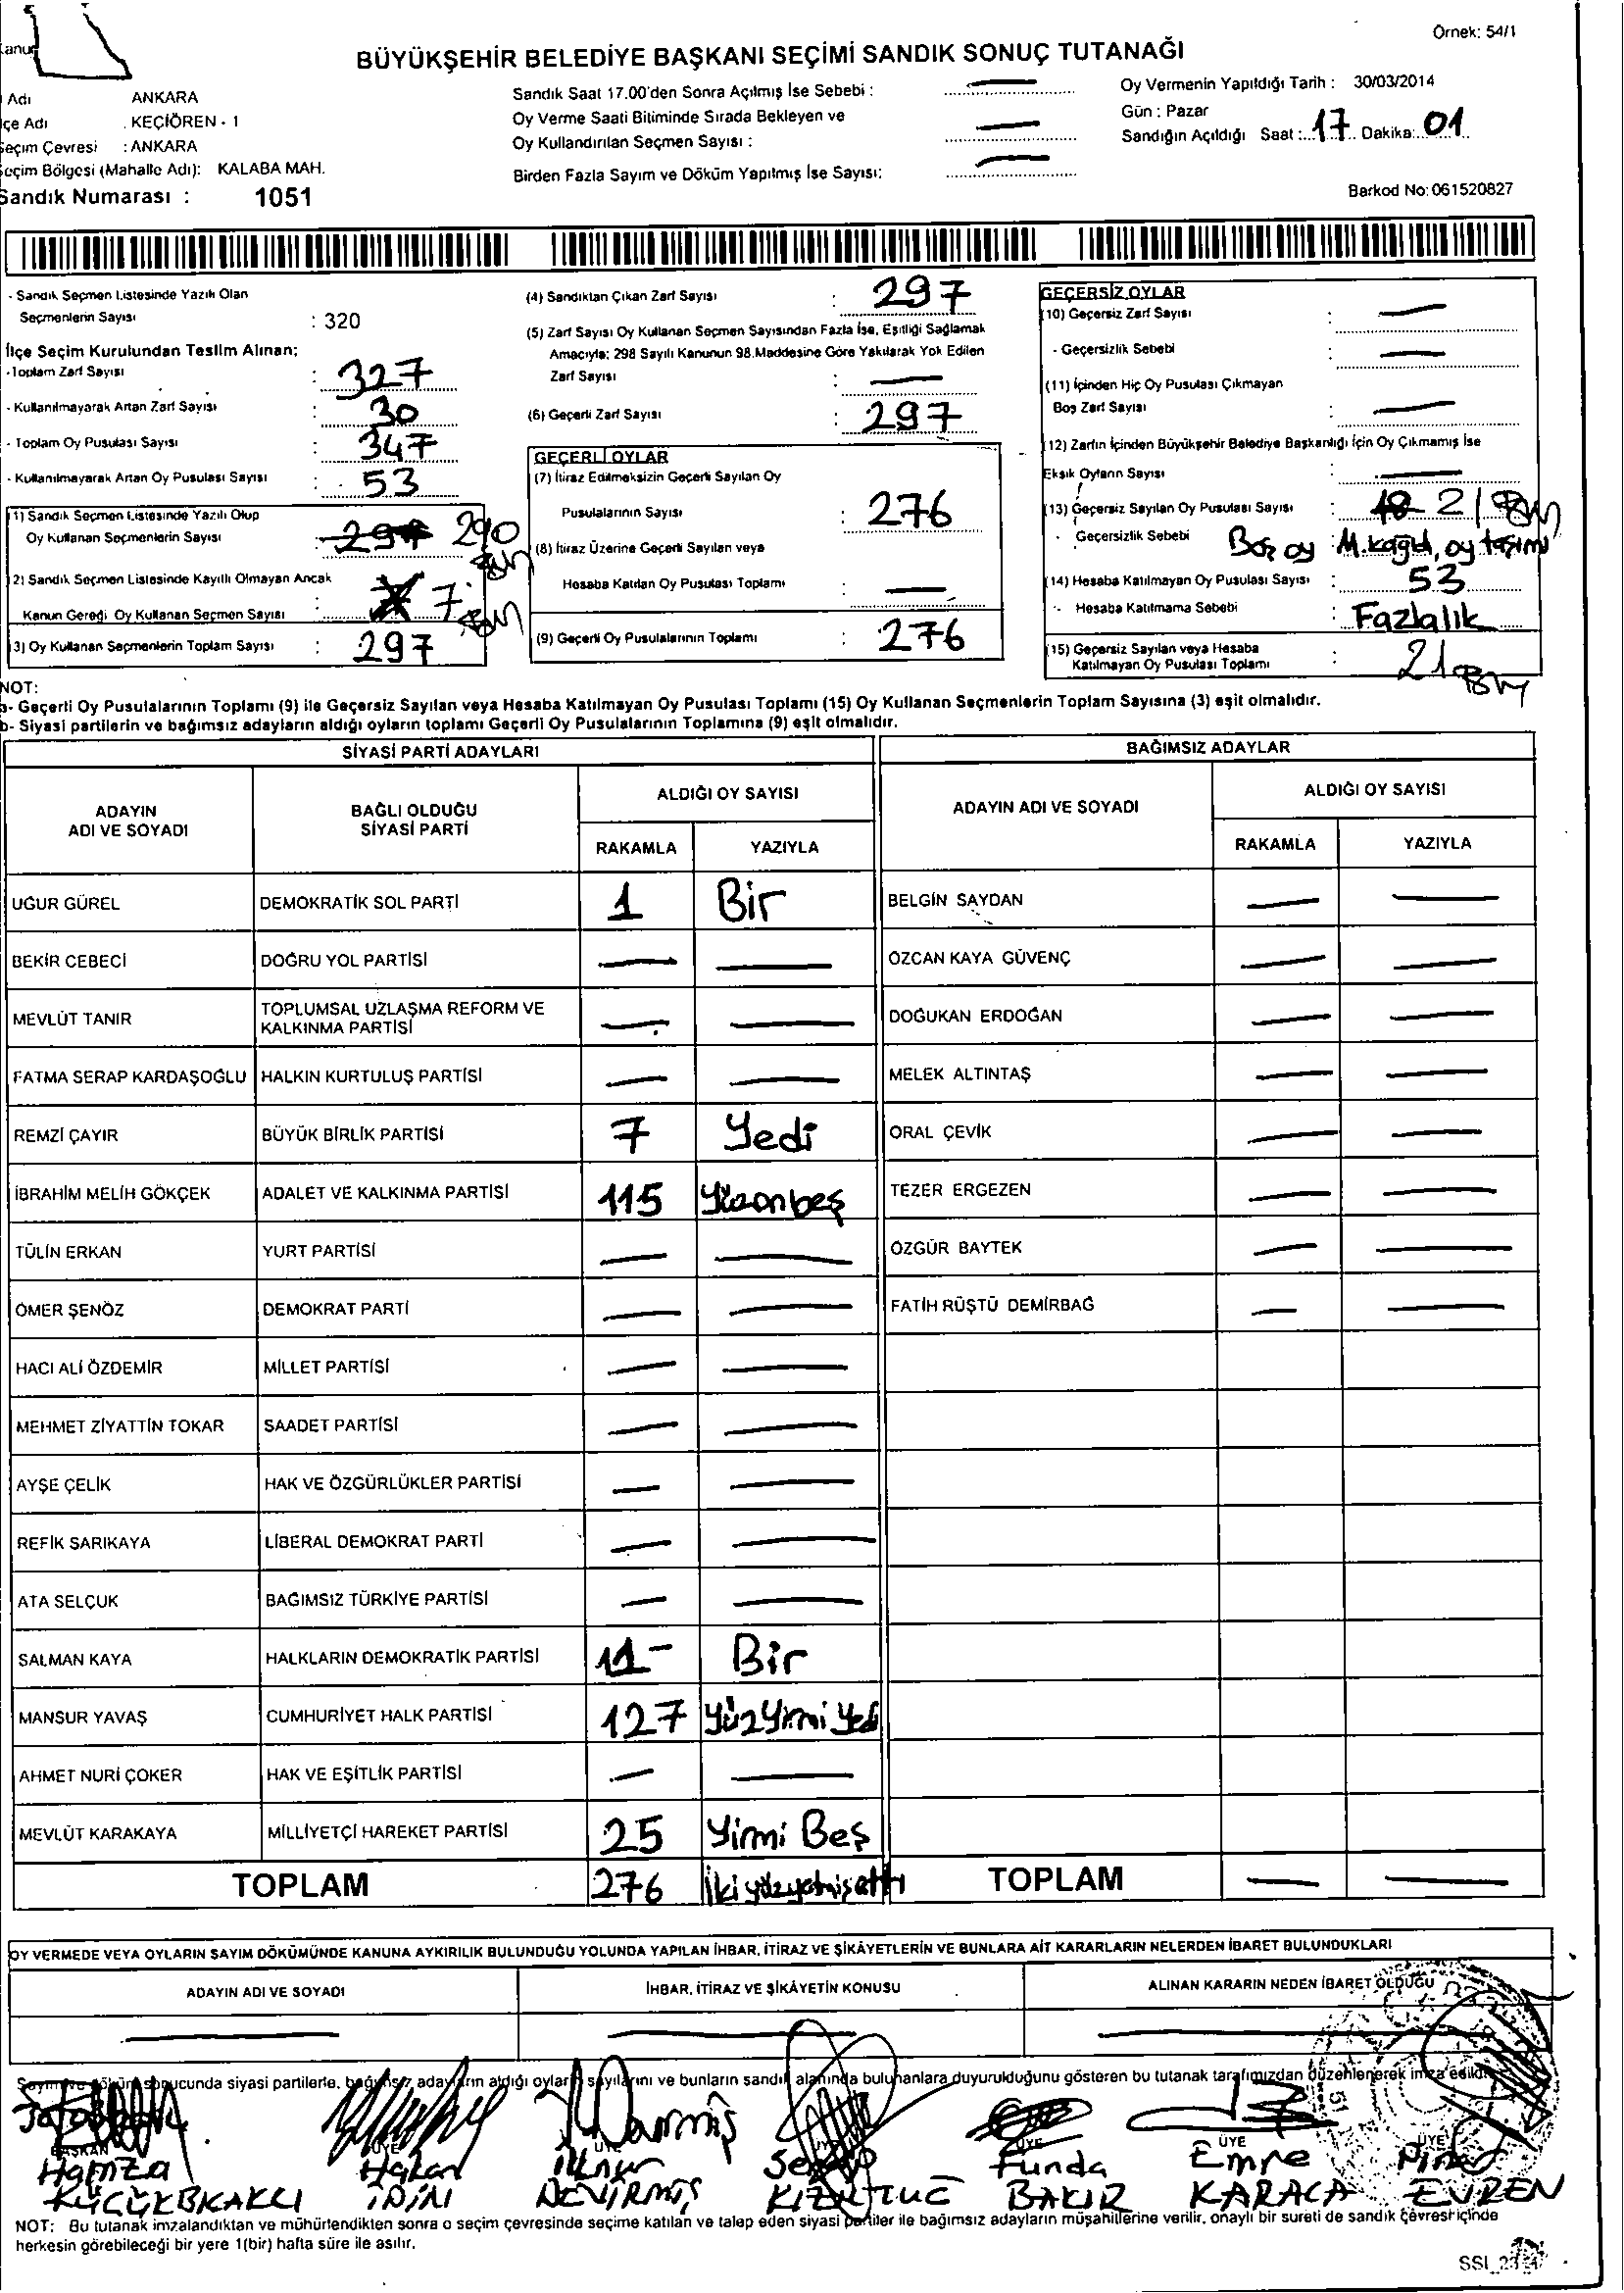 Örnek: 54/1
BÜYÜKŞEHİR BELEDİYE BAŞKANI SEÇİMİ SANDIK SONUÇ TUTANAĞI
Adı ANKARA
çe Adı . KEÇİÖREN - 1
eçim Çevresi : ANKARA
eçim Bölgesi (Mahalle Adı): KALABA MAH.
Sandık Numarası : 1051
Sandık Saat 17.00'den Sonra Açılmış İse Sebebi :
Oy Verme Saati Bitiminde Sırada Bekleyen ve
Oy Kullandırılan Seçmen Sayısı :
Birden Fazla Sayım ve Döküm Yapılmış İse Sayısı:
Oy Vermenin Yapıldığı Tarih : 30/03/2014
Gün : Pazar
Sandığın Açıldığı Saat : 17 Dakika: 01
Barkod No: 061520827
- Sandık Seçmen Listesinde Yazılı Olan
Seçmenlerin Sayısı : 320
İlçe Seçim Kurulundan Teslim Alınan;
- Toplam Zarf Sayısı : 327
- Kullanılmayarak Artan Zarf Sayısı : 30
- Toplam Oy Pusulası Sayısı : 347
- Kullanılmayarak Artan Oy Pusulası Sayısı : 53
1) Sandık Seçmen Listesinde Yazılı Olup
Oy Kullanan Seçmenlerin Sayısı : 290
2) Sandık Seçmen Listesinde Kayıtlı Olmayan Ancak
Kanun Gereği Oy Kullanan Seçmen Sayısı : 7
3) Oy Kullanan Seçmenlerin Toplam Sayısı : 297
(4) Sandıktan Çıkan Zarf Sayısı : 297
(5) Zarf Sayısı Oy Kullanan Seçmen Sayısından Fazla İse, Eşitliği Sağlamak
Amacıyla; 298 Sayılı Kanunun 98.Maddesine Göre Yakılarak Yok Edilen
Zarf Sayısı : —
(6) Geçerli Zarf Sayısı : 297
GEÇERLİ OYLAR
(7) İtiraz Edilmeksizin Geçerli Sayılan Oy
Pusulalarının Sayısı : 276
(8) İtiraz Üzerine Geçerli Sayılan veya
Hesaba Katılan Oy Pusulası Toplamı : —
(9) Geçerli Oy Pusulalarının Toplamı : 276
GEÇERSİZ OYLAR
(10) Geçersiz Zarf Sayısı : —
- Geçersizlik Sebebi : —
(11) İçinden Hiç Oy Pusulası Çıkmayan
Boş Zarf Sayısı : —
(12) Zarfın İçinden Büyükşehir Belediye Başkanlığı İçin Oy Çıkmamış İse
Eksik Oyların Sayısı : —
(13) Geçersiz Sayılan Oy Pusulası Sayısı : 18 21
- Geçersizlik Sebebi Boş oy M.kağıd, oy taşımı
(14) Hesaba Katılmayan Oy Pusulası Sayısı : 53
- Hesaba Katılmama Sebebi : Fazlalık
(15) Geçersiz Sayılan veya Hesaba
Katılmayan Oy Pusulası Toplamı : 21
NOT:
a- Geçerli Oy Pusulalarının Toplamı (9) ile Geçersiz Sayılan veya Hesaba Katılmayan Oy Pusulası Toplamı (15) Oy Kullanan Seçmenlerin Toplam Sayısına (3) eşit olmalıdır.
b- Siyasi partilerin ve bağımsız adayların aldığı oyların toplamı Geçerli Oy Pusulalarının Toplamına (9) eşit olmalıdır.
SİYASİ PARTİ ADAYLARI BAĞIMSIZ ADAYLAR
ADAYIN ADI VE SOYADI BAĞLI OLDUĞU SİYASİ PARTİ ALDIĞI OY SAYISI ADAYIN ADI VE SOYADI ALDIĞI OY SAYISI
RAKAMLA YAZIYLA RAKAMLA YAZIYLA
UĞUR GÜREL DEMOKRATİK SOL PARTİ 1 Bir BELGİN SAYDAN — —
BEKİR CEBECİ DOĞRU YOL PARTİSİ — — ÖZCAN KAYA GÜVENÇ — —
MEVLÜT TANIR TOPLUMSAL UZLAŞMA REFORM VE KALKINMA PARTİSİ — — DOĞUKAN ERDOĞAN — —
FATMA SERAP KARDAŞOĞLU HALKIN KURTULUŞ PARTİSİ — — MELEK ALTINTAŞ — —
REMZİ ÇAYIR BÜYÜK BİRLİK PARTİSİ 7 Yedi ORAL ÇEVİK — —
İBRAHİM MELİH GÖKÇEK ADALET VE KALKINMA PARTİSİ 115 Yüzonbeş TEZER ERGEZEN — —
TÜLİN ERKAN YURT PARTİSİ — — ÖZGÜR BAYTEK — —
ÖMER ŞENÖZ DEMOKRAT PARTİ — — FATİH RÜŞTÜ DEMİRBAĞ — —
HACI ALİ ÖZDEMİR MİLLET PARTİSİ — —
MEHMET ZİYATTİN TOKAR SAADET PARTİSİ — —
AYŞE ÇELİK HAK VE ÖZGÜRLÜKLER PARTİSİ — —
REFİK SARIKAYA LİBERAL DEMOKRAT PARTİ — —
ATA SELÇUK BAĞIMSIZ TÜRKİYE PARTİSİ — —
SALMAN KAYA HALKLARIN DEMOKRATİK PARTİSİ 11- Bir
MANSUR YAVAŞ CUMHURİYET HALK PARTİSİ 127 Yüzyirmi Yedi
AHMET NURİ ÇOKER HAK VE EŞİTLİK PARTİSİ — —
MEVLÜT KARAKAYA MİLLİYETÇİ HAREKET PARTİSİ 25 Yirmi Beş
TOPLAM 276 İkiyüzyetmişaltı TOPLAM — —
OY VERMEDE VEYA OYLARIN SAYIM DÖKÜMÜNDE KANUNA AYKIRILIK BULUNDUĞU YOLUNDA YAPILAN İHBAR, İTİRAZ VE ŞİKÂYETLERİN VE BUNLARA AİT KARARLARIN NELERDEN İBARET BULUNDUKLARI
ADAYIN ADI VE SOYADI İHBAR, İTİRAZ VE ŞİKÂYETİN KONUSU ALINAN KARARIN NEDEN İBARET OLDUĞU
Sayım ve döküm sonucunda siyasi partilerle, bağımsız adayların aldığı oyların sayılarını ve bunların sandık alanında bulunanlara duyurulduğunu gösteren bu tutanak tarafımızdan düzenlenerek imza edildi.
BAŞKAN ÜYE ÜYE ÜYE ÜYE ÜYE ÜYE
Hamza Hakan İlknur Funda Emre
KÜÇÜKBIÇAKCI DEVİRMİŞ BAKIR KARACA EVREN
NOT: Bu tutanak imzalandıktan ve mühürlendikten sonra o seçim çevresinde seçime katılan ve talep eden siyasi partiler ile bağımsız adayların müşahitlerine verilir, onaylı bir sureti de sandık çevresi içinde
herkesin görebileceği bir yere 1(bir) hafta süre ile asılır.